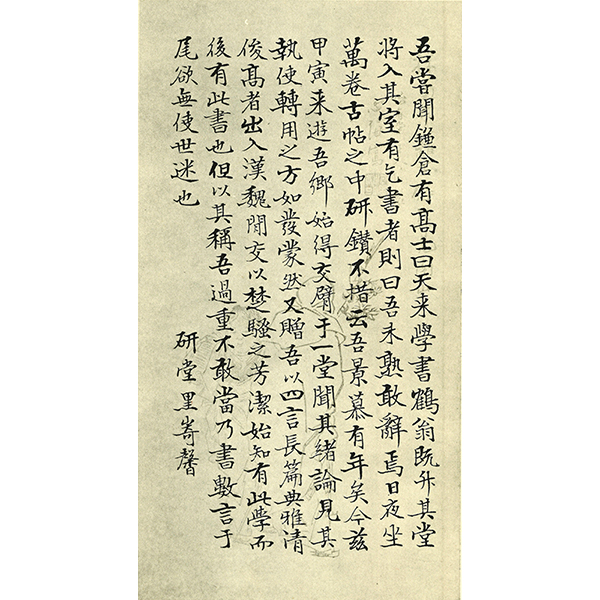 吾嘗聞鎌倉有髙士曰天来學書鶴翁既升其堂
将入其室有乞書者則曰吾未熟敢辭焉日夜坐
萬卷古帖之中研鑽不措云吾景慕有年矣今茲
甲寅来遊吾鄉始得交臂于一堂聞其緒論見其
執使轉用之方如發蒙然又贈吾以四言長篇典雅清
俊髙者出入漢魏閒交以楚騷之芳潔始知有此學而
後有此書也但以其稱吾過重不敢當乃書數言于
尾欲無使世迷也
研堂黒崎馨